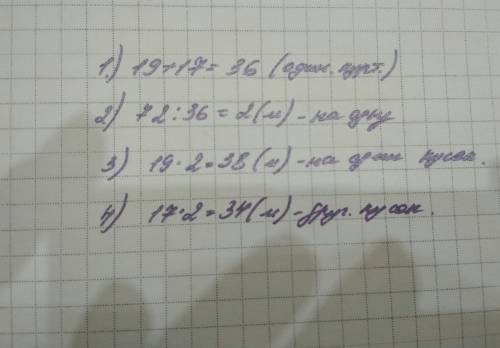 1.) 19+17= 36 (один. курт.)
2) 72:36 = 2(м) - на одну
3) 19·2=38 (м) - на один кусок.
4) 17·2=34(м) - друг. кусок.